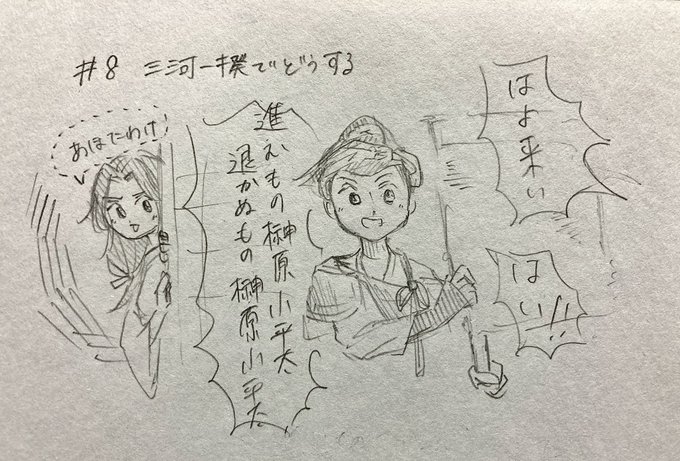 #8 三河一揆でどうする
はよ来い
はい!!
進むもの榊原小平太
退かぬもの榊原小平太
あほたわけ